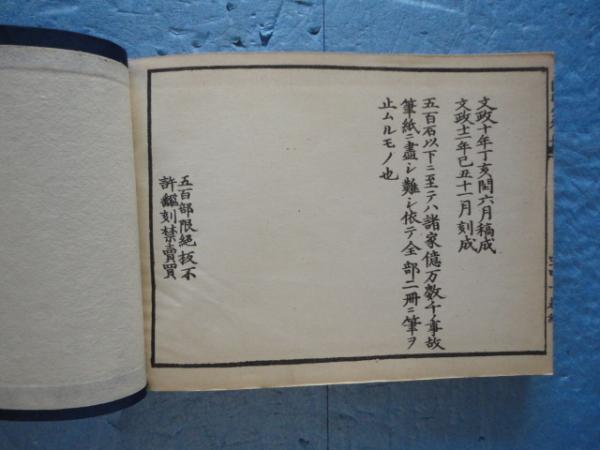 文政十年丁亥閏六月稿成
文政十二年己丑十一月刻成
五百石以下ニ至テハ諸家億万數千ノ事故
筆紙ニ盡シ難シ依テ全部二冊ニ筆ヲ
止ムルモノ也
五百部限絶板不
許飜刻禁賣買